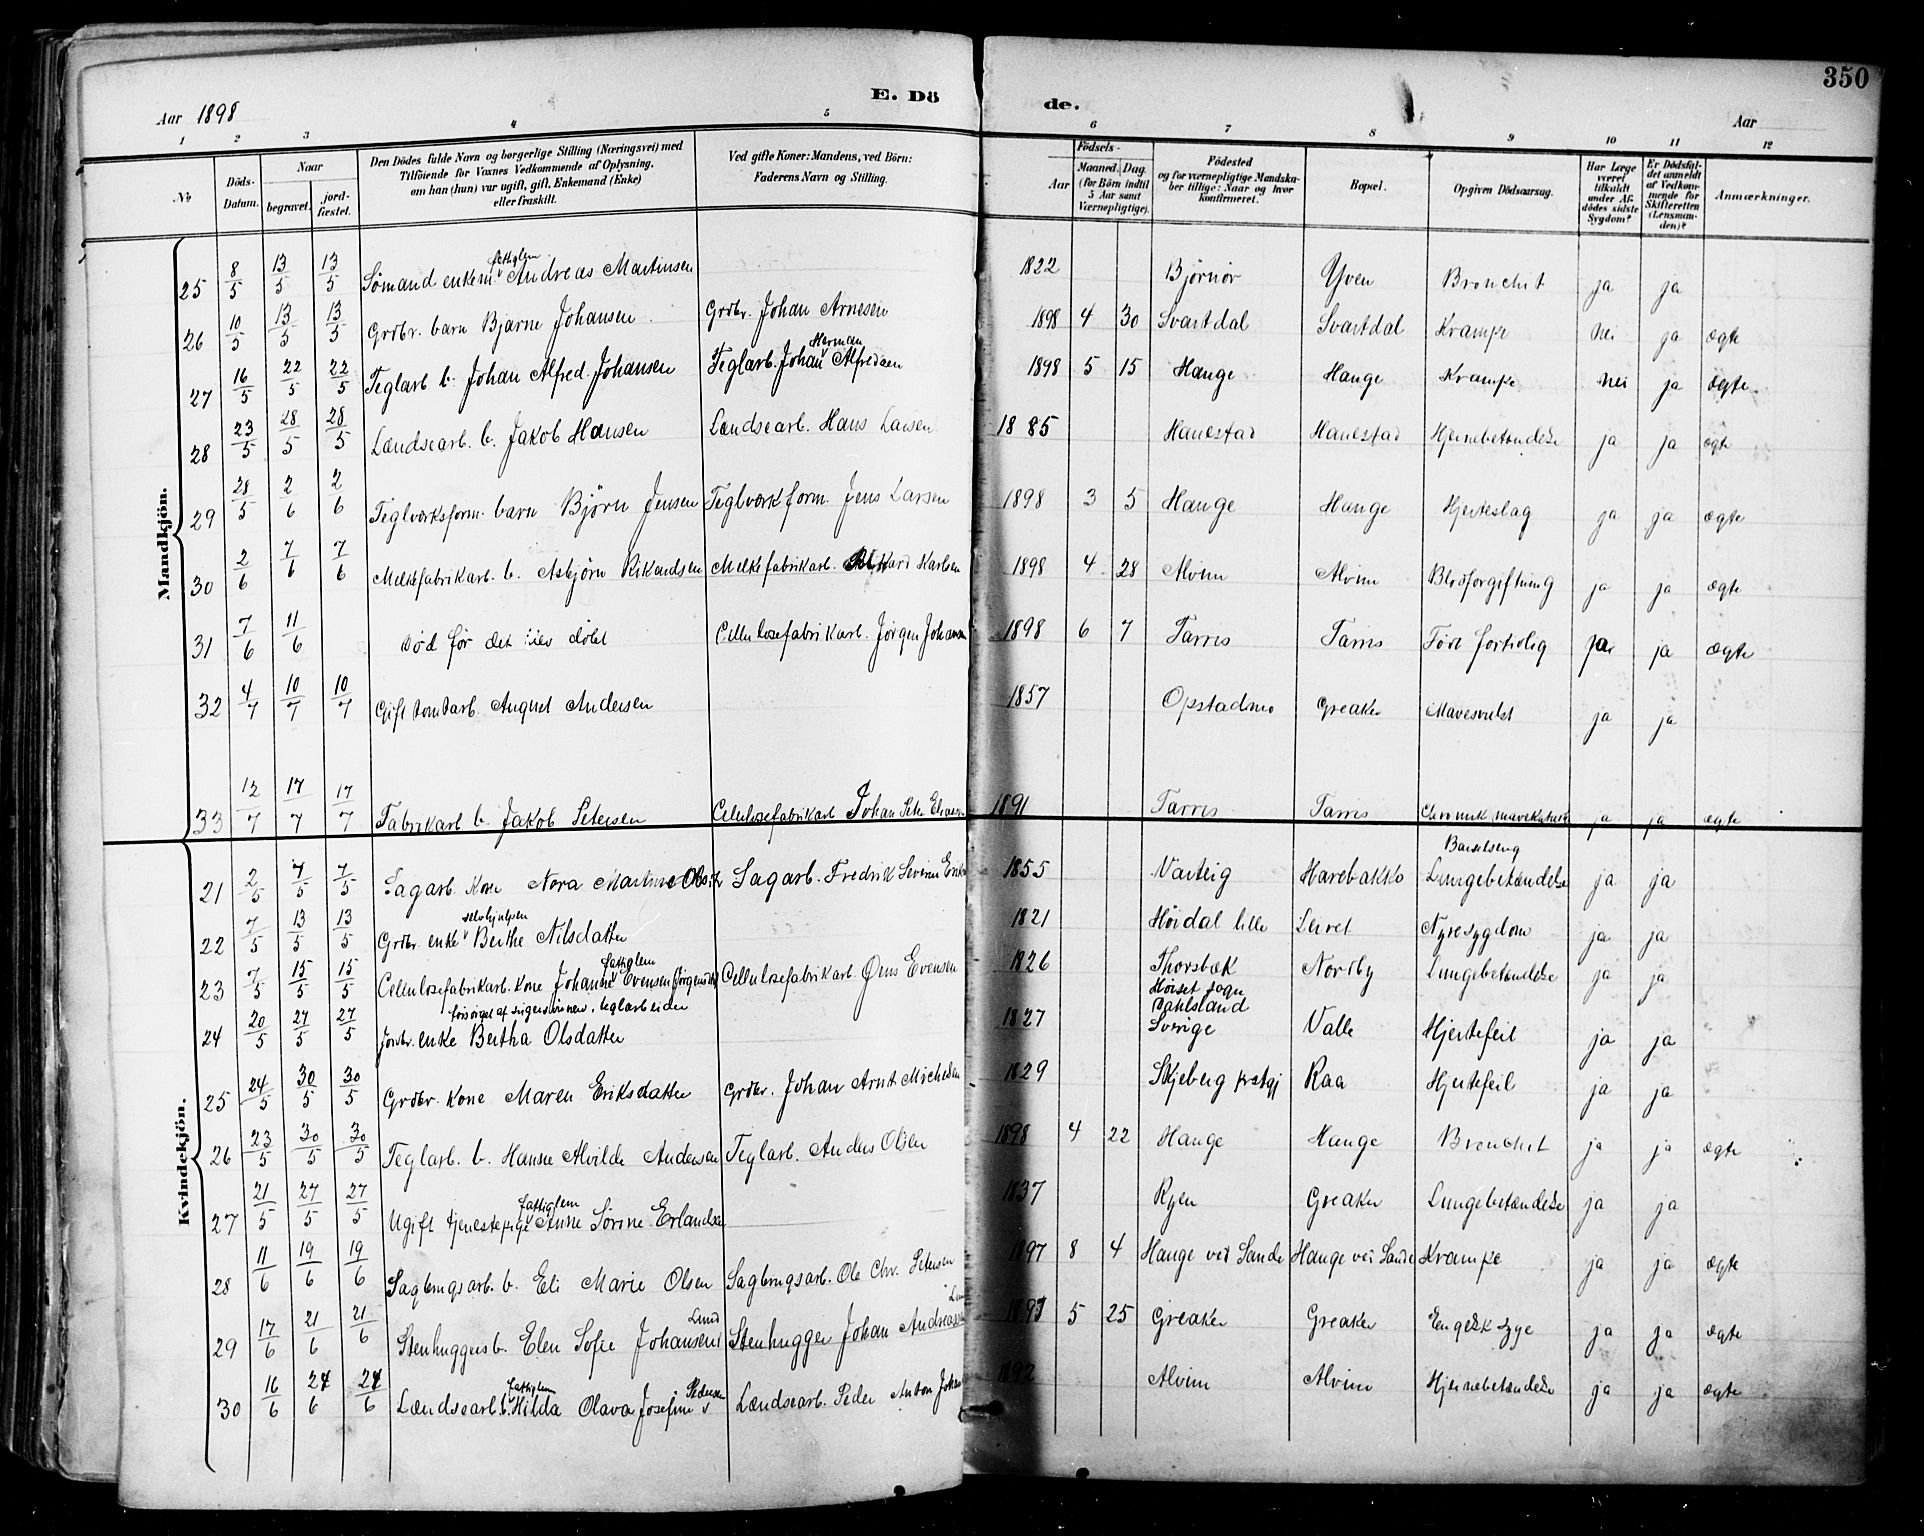 350
E. Dö de.
Aar 1898
Aar
1 2 3 4 5 6 7 8 9 10 11 12
No
Döds-Datum.
Naar
begravet.
jord-fæstet.
Den Dödes fulde Navn og borgerlige Stilling (Næringsvei) med
Tilföiende for Voxnes Vedkommende af Oplysning,
om han (hun) var ugift, gift, Enkemand (Enke)
eller fraskilt.
Ved gifte Koner: Mandens, ved Börn:
Faderens Navn og Stilling.
Födsels-
Aar
Maaned. Dag.
(for Börn indtil
5 Aar samt
Værnepligtige).
Födested
og for værnepligtige Mandska-
ber tillige: Naar og hvor
konfirmeret.
Bopæl.
Opgiven Dödsaarsag.
Har Læge
været
tilkaldt
under Af-
dödes sidste
Sygdom?
Er Dödsfal-
det anmeldt
af Vedkom-
mende for
Skifteretten
(Lensman-
den)?
Anmærkninger.
Mandkjön.
fattiglem
25 8/5 13/5 13/5 Sømand enkem. Andreas Martinsen 1822 Bjørnør Yven Bronchit ja ja
26 10/5 13/5 13/5 Grdbr. barn Bjarne Johansen Grdbr. Johan Arnesen 1898 4 30 Svartdal Svartdal Krampe nei ja ægte
Herman
27 16/5 22/5 22/5 Teglarb. b. Johan Alfred Johansen Teglarb. Johan Alfredsen 1898 5 15 Hauge Hauge Krampe nei ja ægte
28 23/5 28/5 28/5 Lændsearb. b. Jakob Hansen Lændsearb. Hans Larsen 1885 Hanestad Hanestad Hjernebetændelse ja ja ægte
29 28/5 2/6 2/6 Teglverksform. barn Bjørn Jensen Teglværkform. Jens Larsen 1898 3 5 Hauge Hauge Hjerteslag ja ja ægte
30 2/6 7/6 7/6 Melkefabrikarb. b. Asbjørn Rikardsen Melkefabrikarb. Rikard Karlsen 1898 4 28 Alvim Alvim Blodforgiftning ja ja ægte
31 7/6 11/6 Død før det blev døbt Cellulosefabrikarb. Jørgen Johansen 1898 6 7 Tarris Tarris Født fortidlig ja ja ægte
32 4/7 10/7 10/7 Gift tomtarb. August Andersen 1857 Opstadmo Greaker Mavesvulst ja ja
33 12/7 17/7 17/7 Fabrikarb. b. Jakob Petersen Cellulosefabrikarb. Johan Peter 1891 Tarris Tarris Chronisk mavekatarh ja ja ægte
Kvindekjön.
Barselseng
21 2/5 7/5 7/5 Sagarb. Kone Nora Martine Sagarb. Fredrik Severin 1855 Varteig Harebakko Lungebetændelse ja ja
selvhjulpen
22 7/5 13/5 13/5 Grdbr. enke Berthe Nilsdatter 1821 Høidal lille Leiret Nyresygdom ja ja
fattiglem
23 7/5 15/5 15/5 Cellulosefabrikarb. Kone Johanne Evensen Cellulosefabrikarb. Evensen 1826 Thorsbæk Nordby Lungebetændelse ja ja
forsørget af svigersønnen, teglarbeider
Sogn
Dahlsland
24 20/5 27/5 27/5 Jordbr. enke Bertha Olsdatter 1827 Sverige Valle Hjertefeil ja ja
25 24/5 30/5 30/5 Grdbr. Kone Maren Eriksdatter Grdbr. Johan Arnt Michelsen 1829 Skjeberg prstgj Raa Hjertefeil ja ja
26 23/5 30/5 30/5 Teglarb. b. Hansne Alvilde Andersen Teglarb. Anders Olsen 1898 4 22 Hauge Hauge Bronchit ja ja ægte
fattiglem
27 21/5 27/5 27/5 Ugift tjenestepige Anne Sørine Erlandsen 1837 Ryen Greaker Lungebetændelse ja ja
28 11/6 19/6 19/6 Sagbrugsarb. b. Eli Marie Olsen Sagbrugsarb. Ole Chr. Petersen 1897 8 4 Hauge ved Sande Hauge ved Sande Krampe ja ja ægte
Lund
29 17/6 21/6 21/6 Stenhuggers b. Elen Sofie Johansen Stenhugger Johan Andreassen 5 25 Greaker Greaker Engelsk syge ja ja ægte
fattiglem Pedersen
30 16/6 24/6 24/6 Lændsearb. b. Hilda Olava Josefine Lændsearb. Peder Anton 1892 Alvim Alvim Hjernebetændelse ja ja ægte